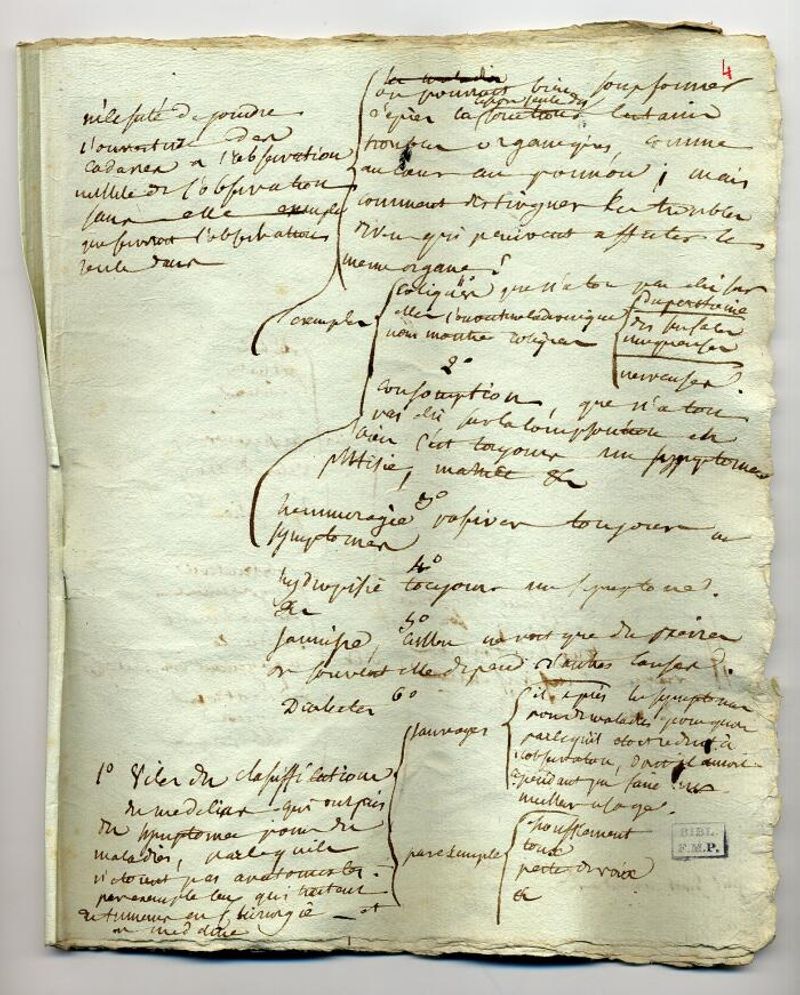 4
nécessité de joindre
l'ouverture des
cadavres a l'observation
nullité de l'observation
sans elle exemple
que seroit l'observation
seule dans
les maladies
on pourroit bien soupçonner
d'après la lésion seule des fonctions
troubles organiques, comme
au cœur au poumon ; mais
comment distinguer les troubles
divers qui peuvent affecter le
meme organe ?
exemples
1°
coliques que n'a ton pas dit sur
elles l'ouverture cadavérique
nous montre coliques
du peritoine
des
muqueuses
nerveuses.
2°
consomption, que n'a ton
pas dit sur la consomption eh
bien c'est toujours un symptome
phtisie, &c
3°
hemmoragie passives toujours
symptomes
4°
hydropisie toujours un symptome.
&c
5°
jaunisse, Cullen ne voit que des pierres
or souvent elle depend d'autres causes.
6°
Diabetes
1° Vices des classifications
de medecins qui ont pris
des symptomes pour des
maladies, parcequ'ils
n'étoient pas anatomistes.
par exemple ceux qui traitent
de tumeurs en chirurgie et
en medecine
sauvages
il a pris les symptomes
pour des maladies pourquoi
parcequ'il etoit reduit à
l'observation, dont il avoit
cependant qui faire un
meilleur usage.
par exemple
essoufflement
toux
perte de voix
&c
BIBL.
F.M.P.